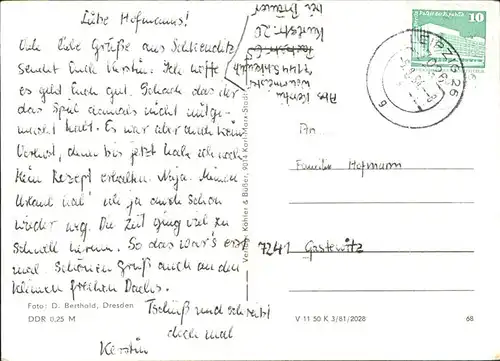 Liebe Hofmanns!
Viele liebe Grüße aus Schkeuditz
sendet Euch Kerstin. Ich hoffe
es geht Euch gut. Schade das der
das Spiel damals nicht mitge-
macht habt. Es war aber auch kein
Verlust, denn bis jetzt hab ich noch
kein Rezept erhalten. Naja. Meinen
Urlaub hab' ich ja auch schon
wieder weg. Die Zeit ging viel zu
schnell herum. So das war's erst
mal. Schönen Gruß auch an den
kleinen frechen Dachs.
Tschüß und schreibt
doch mal
Kerstin
Foto: D. Berthold, Dresden
DDR 0,25 M
Verlag: Köhler & Büßer, 9014 Karl-Marx-Stadt
Abs. Kerstin
7144 Schkeuditz
bei Bräuer
LEIPZIG 26
7026
10
An
Familie Hofmann
7241 Gastewitz
V 11 50 K 3/81/2028
68